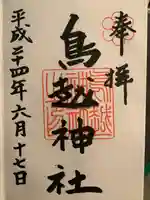 奉拝
鳥越神社
平成二十四年六月十七日